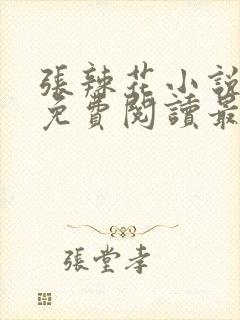 張辣花小說
免費閱讀最
張堂孝